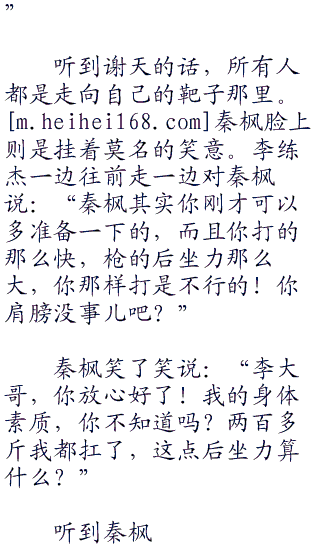 ”
听到谢天的话，所有人
都是走向自己的靶子那里。
[m.heihei168.com]秦枫脸上
则是挂着莫名的笑意。李练
杰一边往前走一边对秦枫
说：“秦枫其实你刚才可以
多准备一下的，而且你打的
那么快，枪的后坐力那么
大，你那样打是不行的！你
肩膀没事儿吧？”
秦枫笑了笑说：“李大
哥，你放心好了！我的身体
素质，你不知道吗？两百多
斤我都扛了，这点后坐力算
什么？”
听到秦枫